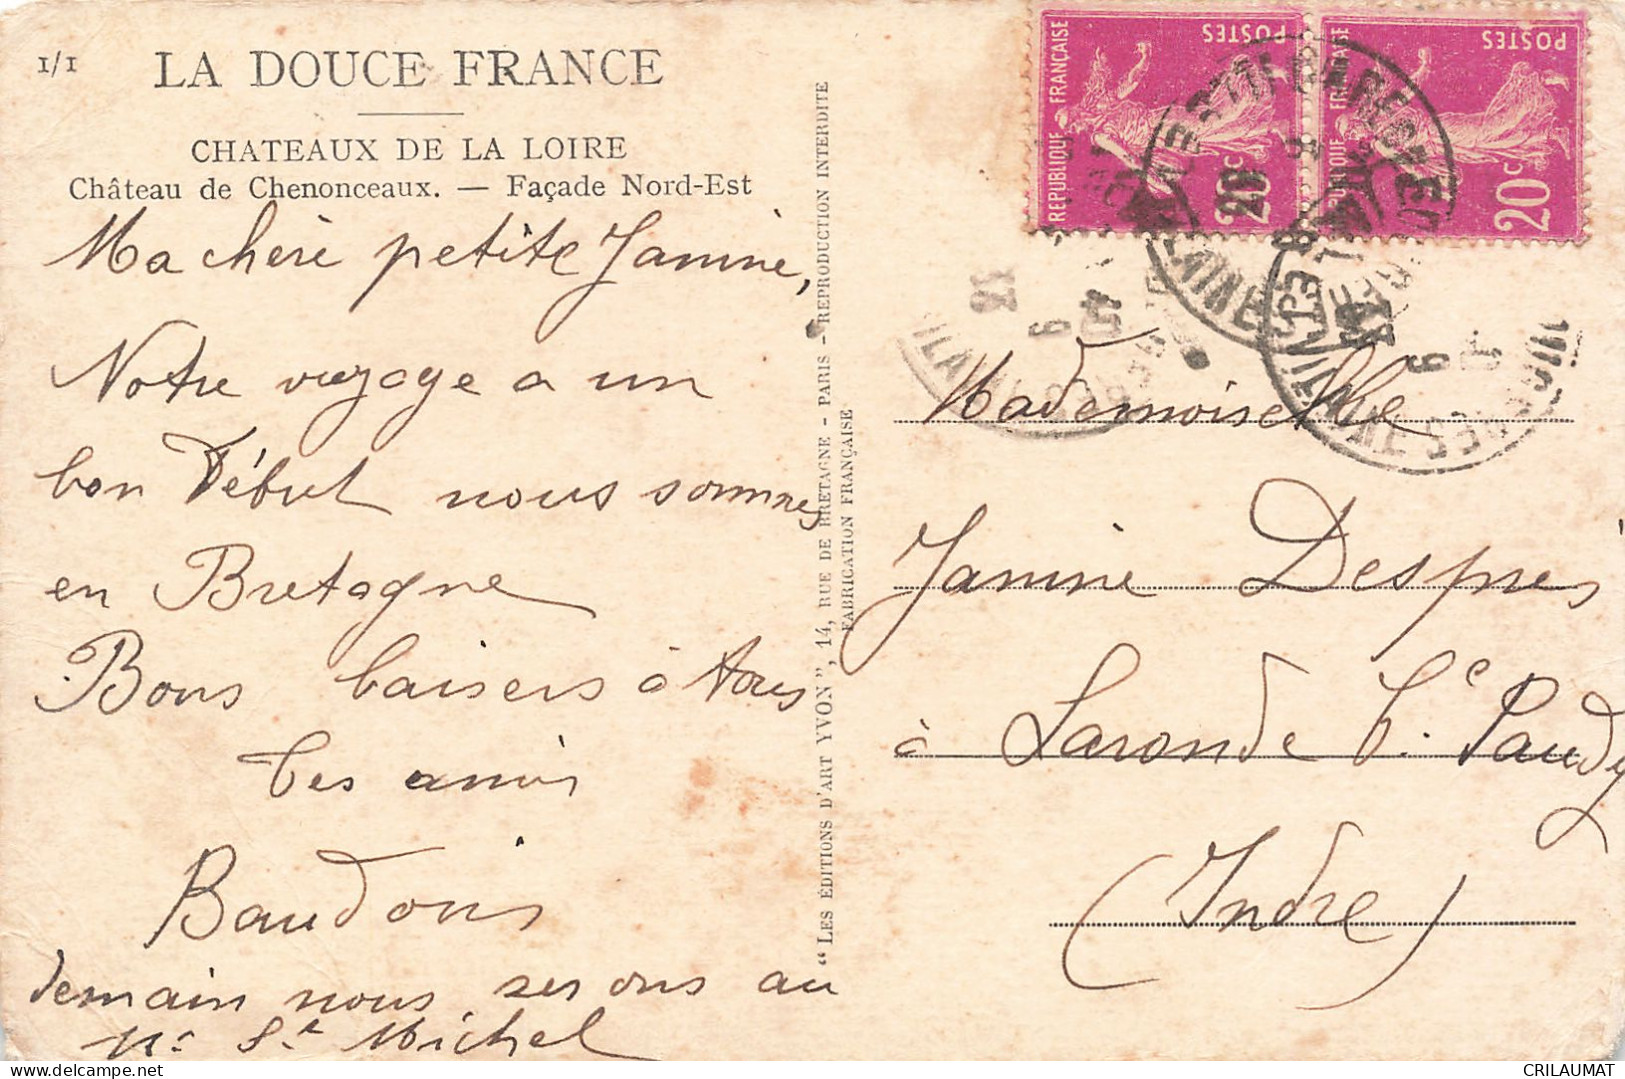 1/1
LA DOUCE FRANCE
CHATEAUX DE LA LOIRE
Château de Chenonceaux. — Façade Nord-Est
Ma chère petite Janine,
Notre voyage a un
bon Début nous sommes
en Bretagne
Bons baisers à tous
Tes amis
Baudouis
demain nous serons au
Mt St Michel
"LES ÉDITIONS D'ART YVON", 14, RUE DE BRETAGNE - PARIS - REPRODUCTION INTERDITE
FABRICATION FRANÇAISE
REPUBLIQUE FRANÇAISE
POSTES
20c
FRANÇAISE
POSTES
20c
Mademoiselle
Janine Desprès
à Laronde
(Indre)
CRILAUMAT